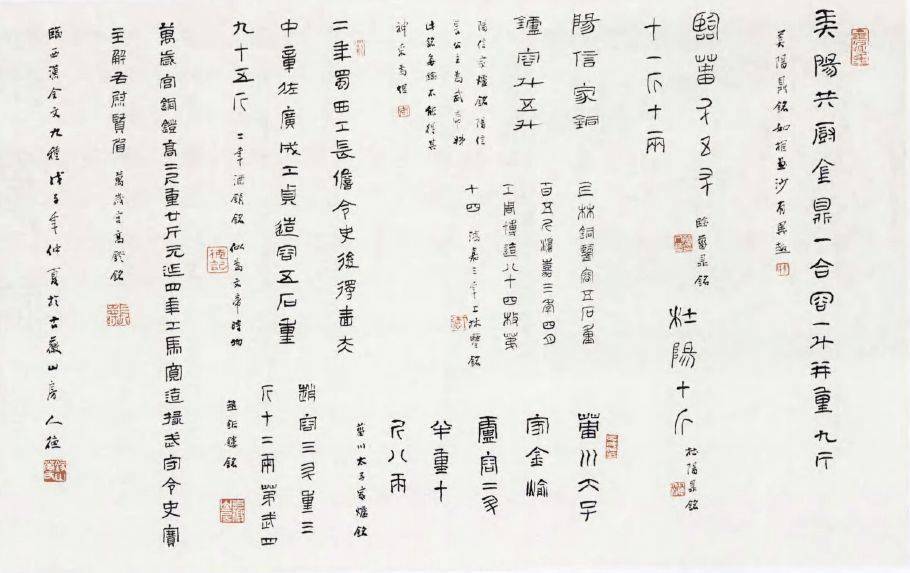 美陽共廚金鼎一合容一斗并重九斤
美陽鼎銘如錐畫沙有異趣
十一斤十二兩
鼎銘
杜陽十斤
杜陽鼎銘
陽信家銅
鑪容斗五升
陽信家爐銘陽信
長公主為武帝姊
此銘每臨不能得其
神采為憾
上林銅鑒容五石重
百五斤鴻嘉三年四月
工周博造八十四枚第
十四 鴻嘉三年上林鑒銘
菑川太子
家金
盧容二
半重十
斤八兩
菑川太子家爐銘
二年蜀西工長儋令史後得嗇夫
中章佐廣成工貞造容五石重
九十五斤 二年酒鋗銘 似為文帝時物
容三斗重三
斤十二兩第四
萬歲宮銅鐙高二尺重廿斤元延四年工馬寬造掾武守令史賞
主解右尉賢省 萬歲宮高鐙銘
臨西漢金文九種戊子年仲夏於古山房